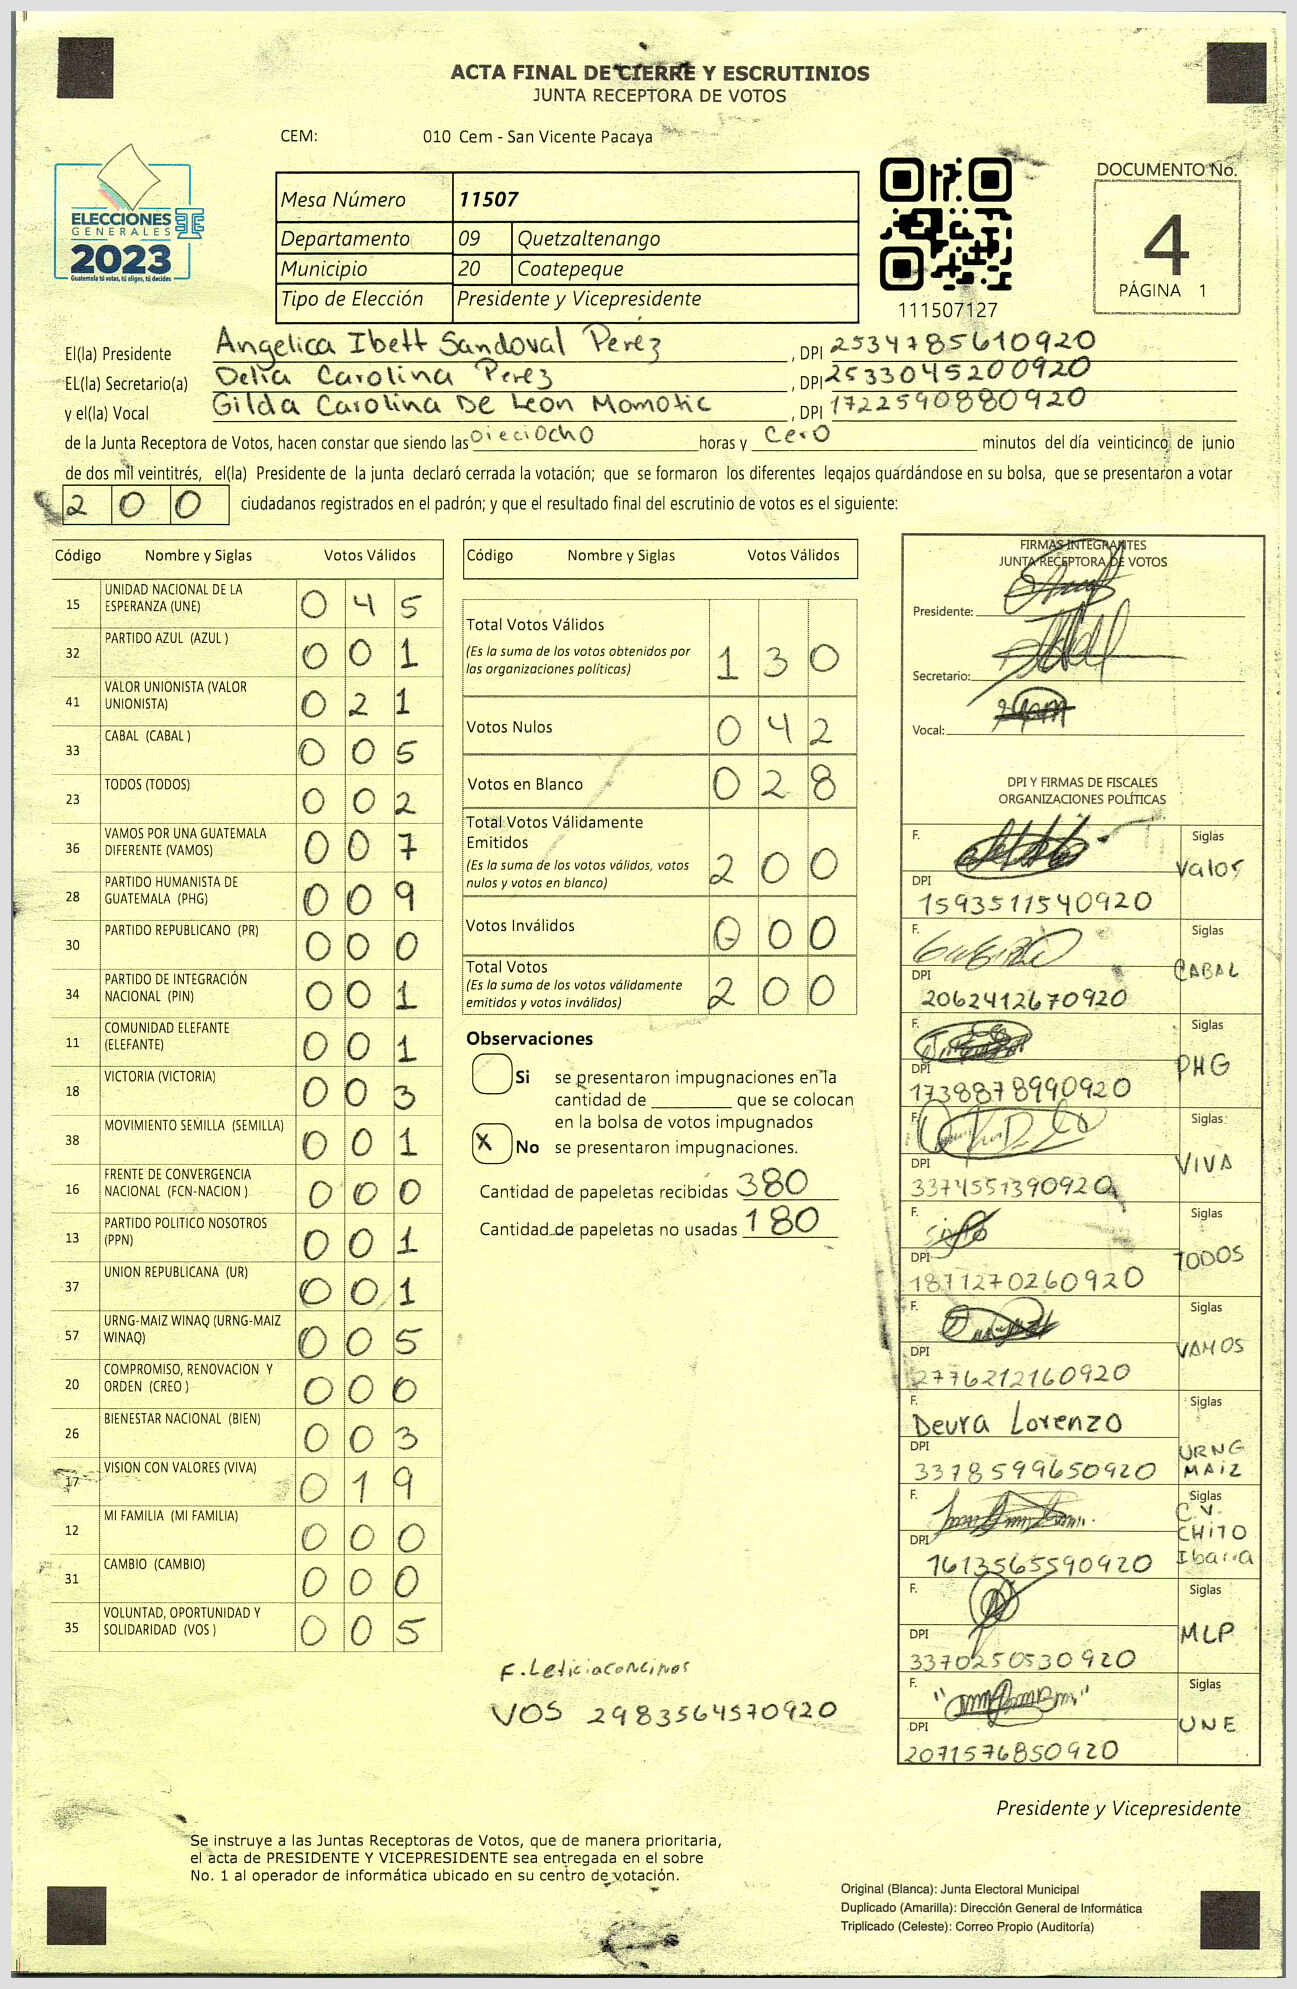 ACTA FINAL DE CIERRE Y ESCRUTINIOS
JUNTA RECEPTORA DE VOTOS
CEM: 010 Cem - San Vicente Pacaya
ELECCIONES
GENERALES
2023
Guatemala tú votas, tú eliges, tú decides
Mesa Número 11507
Departamento 09 Quetzaltenango
Municipio 20 Coatepeque
Tipo de Elección Presidente y Vicepresidente
111507127
DOCUMENTO No.
4
PÁGINA 1
El(la) Presidente Angelica Ibett Sandoval Perez , DPI 2534785610920
EL(la) Secretario(a) Delia Carolina Perez , DPI 2533045200920
y el(la) Vocal Gilda Carolina De Leon Momotic , DPI 1722590880920
de la Junta Receptora de Votos, hacen constar que siendo las Dieciocho horas y cero minutos del día veinticinco de junio
de dos mil veintitrés, el(la) Presidente de la junta declaró cerrada la votación; que se formaron los diferentes legajos guardándose en su bolsa, que se presentaron a votar
200 ciudadanos registrados en el padrón; y que el resultado final del escrutinio de votos es el siguiente:
Código Nombre y Siglas Votos Válidos
15 UNIDAD NACIONAL DE LA ESPERANZA (UNE) 045
32 PARTIDO AZUL (AZUL ) 001
41 VALOR UNIONISTA (VALOR UNIONISTA) 021
33 CABAL (CABAL ) 005
23 TODOS (TODOS) 002
36 VAMOS POR UNA GUATEMALA DIFERENTE (VAMOS) 007
28 PARTIDO HUMANISTA DE GUATEMALA (PHG) 009
30 PARTIDO REPUBLICANO (PR) 000
34 PARTIDO DE INTEGRACIÓN NACIONAL (PIN) 001
11 COMUNIDAD ELEFANTE (ELEFANTE) 001
18 VICTORIA (VICTORIA) 003
38 MOVIMIENTO SEMILLA (SEMILLA) 001
16 FRENTE DE CONVERGENCIA NACIONAL (FCN-NACION ) 000
13 PARTIDO POLITICO NOSOTROS (PPN) 001
37 UNION REPUBLICANA (UR) 001
57 URNG-MAIZ WINAQ (URNG-MAIZ WINAQ) 005
20 COMPROMISO, RENOVACION Y ORDEN (CREO ) 000
26 BIENESTAR NACIONAL (BIEN) 003
17 VISION CON VALORES (VIVA) 019
12 MI FAMILIA (MI FAMILIA) 000
31 CAMBIO (CAMBIO) 000
35 VOLUNTAD, OPORTUNIDAD Y SOLIDARIDAD (VOS ) 005
Código Nombre y Siglas Votos Válidos
Total Votos Válidos 130
(Es la suma de los votos obtenidos por
las organizaciones políticas)
Votos Nulos 042
Votos en Blanco 028
Total Votos Válidamente
Emitidos 200
(Es la suma de los votos válidos, votos
nulos y votos en blanco)
Votos Inválidos 000
Total Votos 200
(Es la suma de los votos válidamente
emitidos y votos inválidos)
Observaciones
Si se presentaron impugnaciones en la
cantidad de ________ que se colocan
en la bolsa de votos impugnados
X No se presentaron impugnaciones.
Cantidad de papeletas recibidas 380
Cantidad de papeletas no usadas 180
F. Leticia
VOS 2983564570920
FIRMAS INTEGRANTES
JUNTA RECEPTORA DE VOTOS
Presidente:
Secretario:
Vocal:
DPI Y FIRMAS DE FISCALES
ORGANIZACIONES POLÍTICAS
F. Siglas
Valor
DPI
1593511540920
F. Siglas
CABAL
DPI
2062412670920
F. Siglas
PHG
DPI
1738878990920
F. Siglas
VIVA
DPI
3374551390920
F. Siglas
TODOS
DPI
1871270260920
F. Siglas
VAMOS
DPI
2776212160920
F. Siglas
Deura Lorenzo
URNG
MAIZ
DPI
3378599650920
F. Siglas
C.V.
CHITO
Ibarra
DPI
1613565590920
F. Siglas
MLP
DPI
3370250530920
F. Siglas
UNE
DPI
2071576850920
Presidente y Vicepresidente
Se instruye a las Juntas Receptoras de Votos, que de manera prioritaria,
el acta de PRESIDENTE Y VICEPRESIDENTE sea entregada en el sobre
No. 1 al operador de informática ubicado en su centro de votación.
Original (Blanca): Junta Electoral Municipal
Duplicado (Amarilla): Dirección General de Informática
Triplicado (Celeste): Correo Propio (Auditoría)